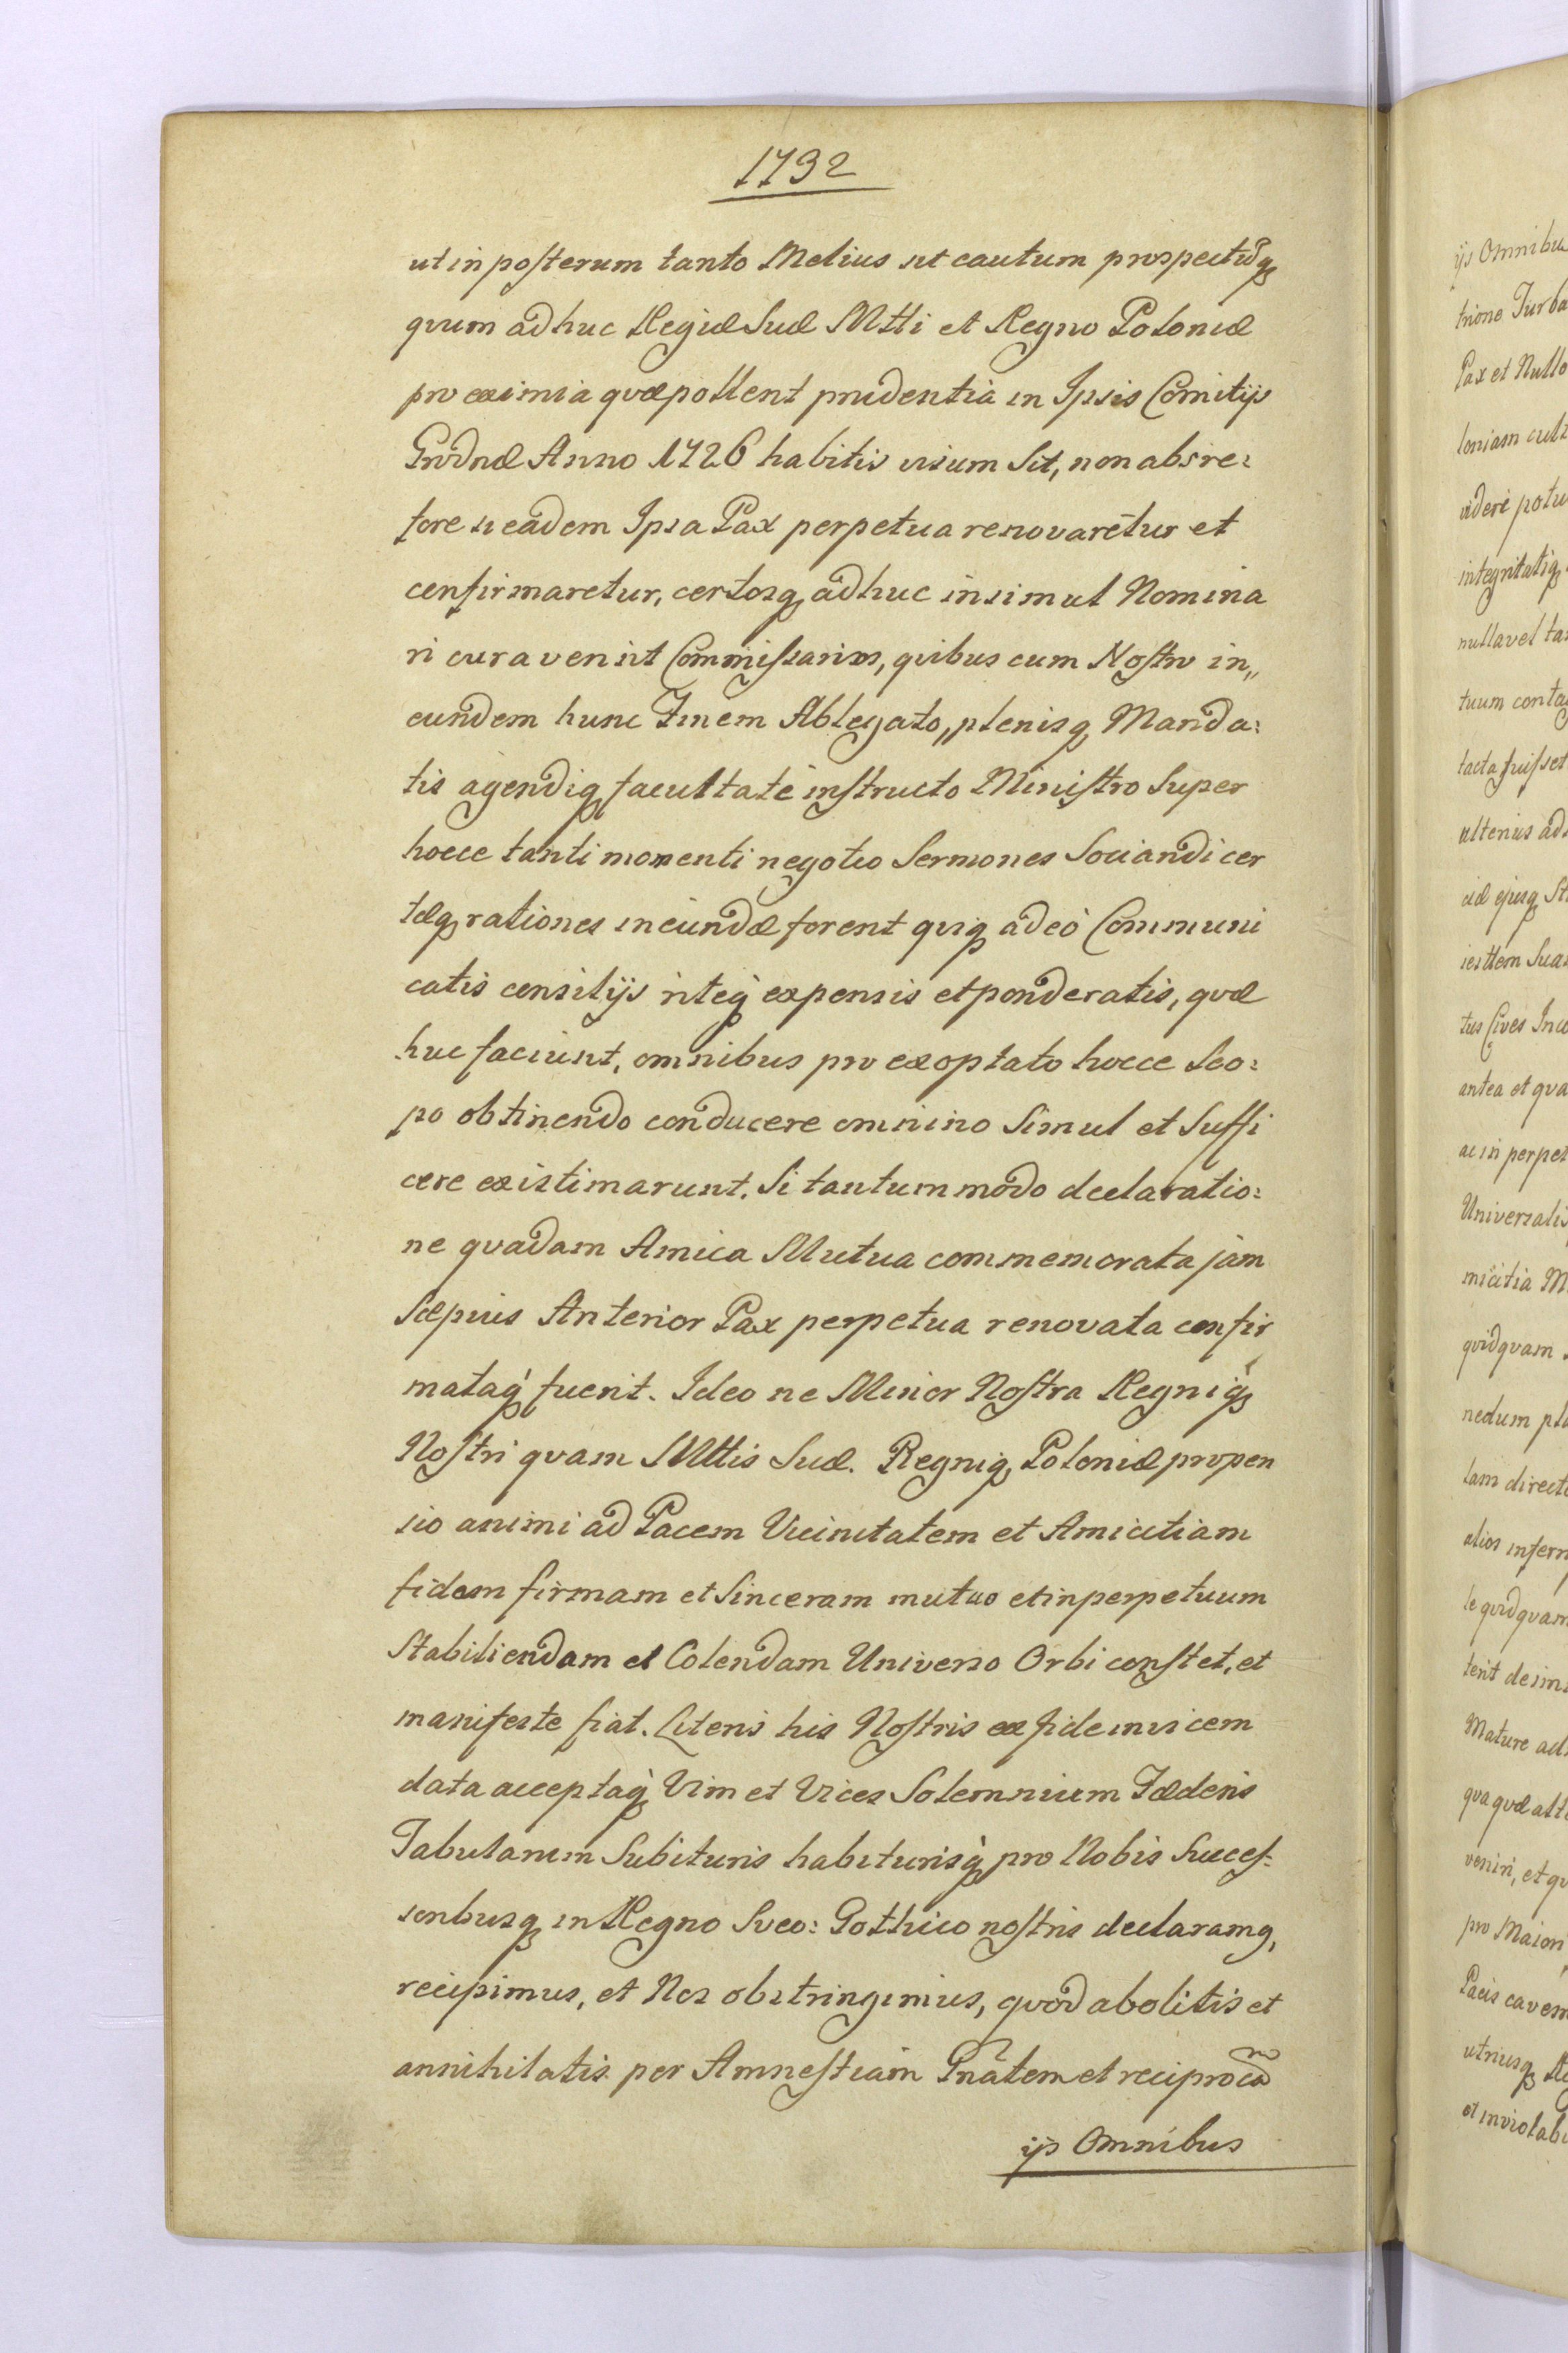 1732
ut in posterum tanto Melius sit cautum prospectūq
qvum adhuc Regiæ Suæ Mtti et Regno Poloniæ
pro eximia qvæ pollent prudentia in Ipsis Comitijs
Grodnæ Anno 1726 habitis visum Sit, non abs re:
fore si eadem Ipsa Pax perpetua renovaretur et
confirmaretur, certosq adhuc insimul Nomina
ri curaverint Commissarios, qvibus cum Nostro in„
eundem hunc Finem Ablegato, plenisq Manda:
tis agendiq facultate instructo Ministro Super
hocce tanti momenti negotio Sermones Sociandi cer
tæq rationes ineundæ forent qviq adeò Communi
catis consilijs ritèq expensis et ponderatis, qvæ
huc faciunt, omnibus pro exoptato hocce Sco:
po obtinendo conducere omnino Simul et Suffi
cere existimarunt. Si tantummodo declaratio:
ne qvadam Amica Mutua commemorata jam
Sæpius Anterior Pax perpetua renovata confir
mataq fuerit. Ideo ne Minor Nostra Regniq
Nostri qvam Mttis Suæ. Regniq Poloniæ propen
sio animi ad Pacem Vicinitatem et Amicitiam
fidam firmam et Sinceram mutuo et in perpetuum
Stabiliendam et Colendam Universo Orbi constet, et
manifeste fiat. Literis his Nostris ex fide invicem
data acceptaq Vim et Vices Solemnium Fæderis
Tabularum Subituris habiturisq pro Nobis Succes:
soribusq in Regno Sveo: Gothico nostris declaramq,
recipimus, et Nos obstringimus, qvod abolitis et
annihilatis per Amnestiam Gnãtem et reciprocã
ijs Omnibus
ijs Omnibu
trione Turba
Pax et Nullo
loniam cult
videri potu
integritatiq
nulla vel ta
tuum conta
tacta fuisset
ulterius ad
ciæ ejusq St
iesttem Sua
tus Cives Inc
antea et qva
ac in perpet
Universalis
micitia M
qvidqvam
nedum pl
tam direct
alios infer
le qvidqvam
terit de im
Mature ad
qva qvæ alt
veniri, et qv
pro Maiori
Pacis caven
utriusq Re
et inviolab